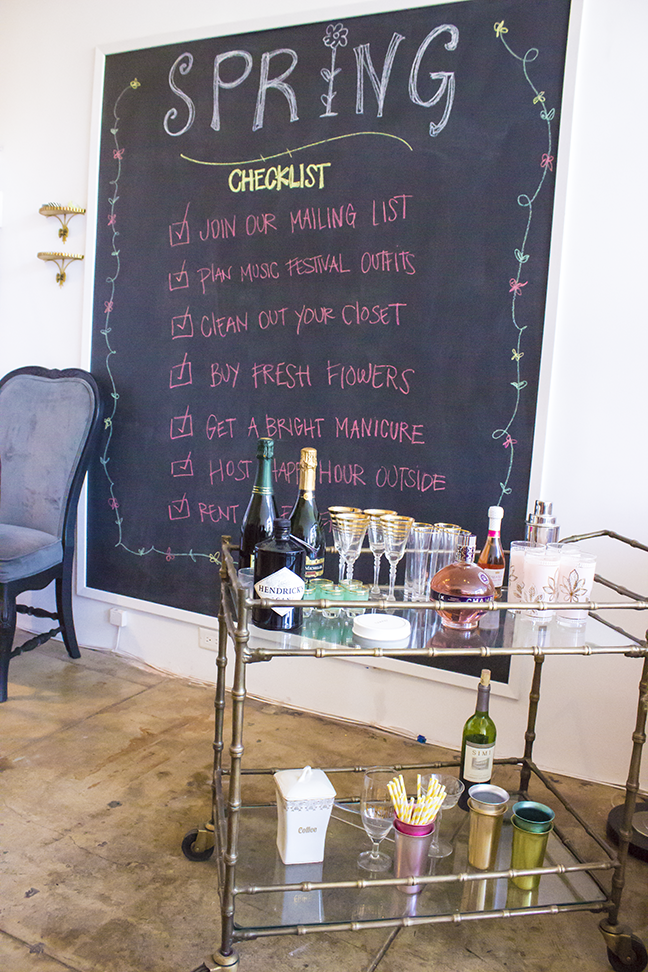 SPRING
CHECKLIST
JOIN OUR MAILING LIST
PLAN MUSIC FESTIVAL OUTFITS
CLEAN OUT YOUR CLOSET
BUY FRESH FLOWERS
GET A BRIGHT MANICURE
HOST HAPPY HOUR OUTSIDE
RENT
HENDRICK'S
CHAM
Coffee